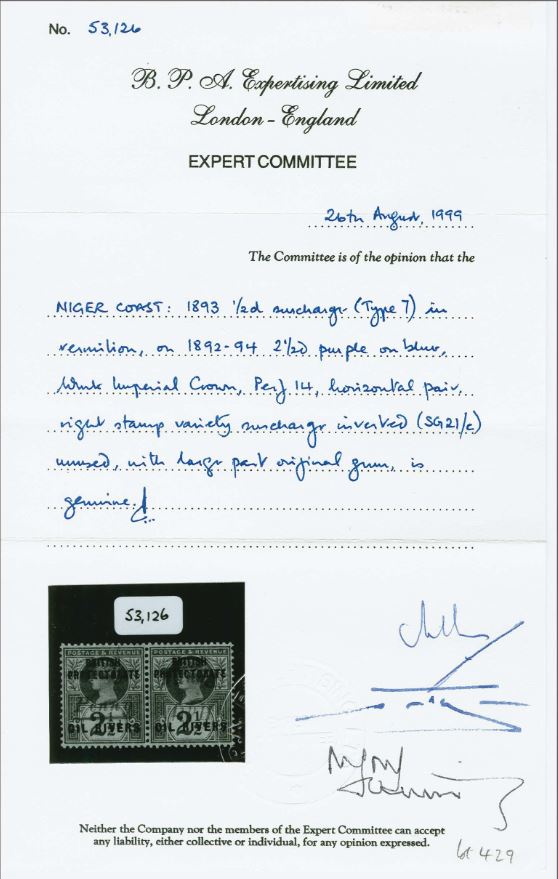 No. 53,126
B. P. A. Expertising Limited
London - England
EXPERT COMMITTEE
26th August, 1999
The Committee is of the opinion that the
NIGER COAST: 1893 ½d surcharge (Type 7) in
vermilion, on 1892-94 2½d purple on blue,
Wmk Imperial Crown, Perf 14, horizontal pair,
right stamp variety surcharge inverted (SG21/c)
unused, with large part original gum, is
genuine.
53,126
POSTAGE & REVENUE POSTAGE & REVENUE
BRITISH BRITISH
PROTECTORATE PROTECTORATE
2½ 2½
OIL RIVERS OIL RIVERS
Neither the Company nor the members of the Expert Committee can accept
any liability, either collective or individual, for any opinion expressed.
lot 429